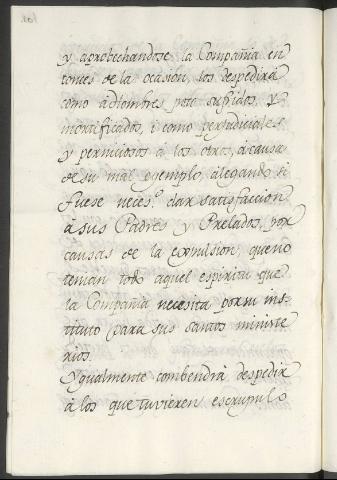 y aprobechandose la Compañia en
tonces de la ocasion, los despedirá
como á hombres poco sufridos, y
mortificados, i como perjudiciales
y perniciosos á los otros, á causa
de su mal egemplo, alegando si
fuese neces.º dar satisfaccion
á sus Padres y Prelados, por
causas de la expulsion, que no
tenian todo aquel espiritu que
la Compañia necesita por su ins-
tituto para sus santos ministe
rios.
Ygualmente combendrá despedir
á los que tuvieren escrupulo